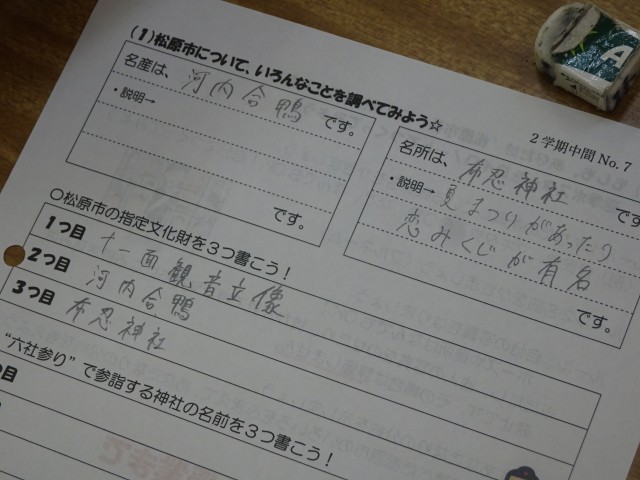 (1)松原市について、いろんなことを調べてみよう☆
2学期中間 No.7
名産は、河内合鴨です。
・説明→
です。
名所は、布忍神社で
・説明→夏まつりがあったり
恋みくじが有名
です。
○松原市の指定文化財を3つ書こう！
1つ目 十一面観音立像
2つ目 河内合鴨
3つ目 布忍神社
“六社参り”で参詣する神社の名前を3つ書こう！
つ目
A